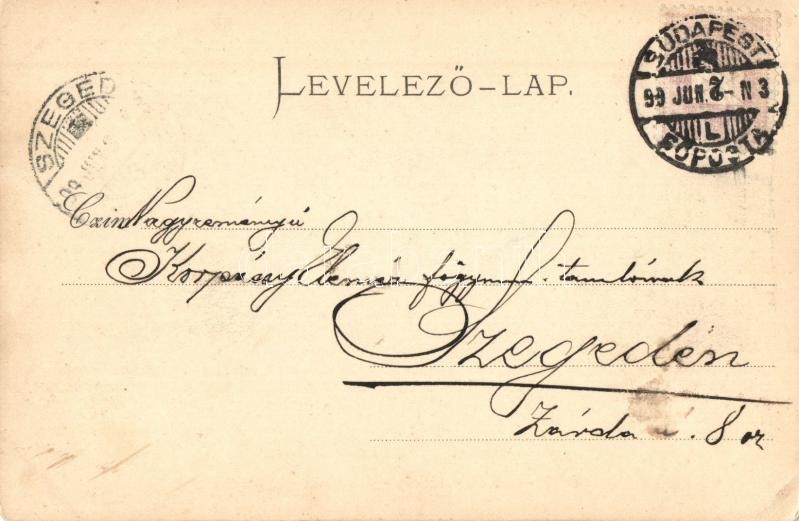 LEVELEZŐ-LAP.
BUDAPEST
99 JUN. 2 - N 3
L
FŐPOSTA
SZEGED
Nagyreményü
Korpásy főgymn. tanulónak
Szegeden
Zárda u. 8 sz